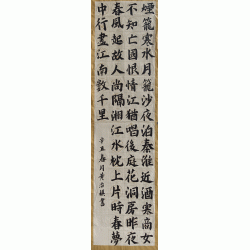 煙籠寒水月籠沙夜泊秦淮近酒家商女
不知亡國恨隔江猶唱後庭花洞房昨夜
春風起故人尚隔湘江水枕上片時春夢
中行盡江南數千里
辛丑春月